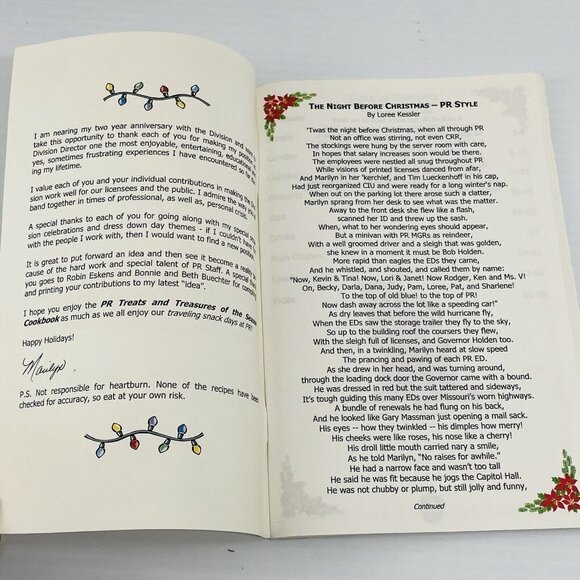 I am nearing my two year anniversary with the Division and
take this opportunity to thank each of you for making my
Division Director one the most enjoyable, entertaining,
yes, sometimes frustrating experiences I have encountered so far
ing my lifetime.
I value each of you and your individual contributions in making the
sion work well for our licensees and the public. I admire the way
band together in times of professional, as well as, personal crisis.
A special thanks to each of you for going along with my special
sion celebrations and dress down day themes - if I couldn't have
with the people I work with, then I would want to find a new
It is great to put forward an idea and then see it become a reality
cause of the hard work and special talent of PR Staff. A special
you goes to Robin Eskens and Bonnie and Beth Buechter for
and printing your contributions to my latest "idea".
I hope you enjoy the PR Treats and Treasures of the
Cookbook as much as we all enjoy our traveling snack days at PR!
Happy Holidays!
Marilyn
P.S. Not responsible for heartburn. None of the recipes have been
checked for accuracy, so eat at your own risk.
THE NIGHT BEFORE CHRISTMAS — PR STYLE
By Loree Kessler
'Twas the night before Christmas, when all through PR
Not an office was stirring, not even CRR,
The stockings were hung by the server room with care,
In hopes that salary increases soon would be there.
The employees were nestled all snug throughout PR
While visions of printed licenses danced from afar,
And Marilyn in her 'kerchief, and Tim Lueckenhoff in his cap,
Had just reorganized CIU and were ready for a long winter's nap.
When out on the parking lot there arose such a clatter,
Marilyn sprang from her desk to see what was the matter.
Away to the front desk she flew like a flash,
scanned her ID and threw up the sash.
When, what to her wondering eyes should appear,
But a minivan with PR MGRs as reindeer,
With a well groomed driver and a sleigh that was golden,
she knew in a moment it must be Bob Holden.
More rapid than eagles the EDs they came,
and he whistled, and shouted, and called them by name:
"Now, Kevin & Tina! Now, Lori & Janet! Now Rodger, Ken and Ms. V!
On, Becky, Darla, Dana, Judy, Pam, Loree, Pat, and Sharlene!
To the top of old blue! to the top of PR!
Now dash away across the lot like a speeding car!"
As dry leaves that before the wild hurricane fly,
When the EDs saw the storage trailer they fly to the sky,
So up to the building roof the coursers they flew,
With the sleigh full of licenses, and Governor Holden too.
And then, in a twinkling, Marilyn heard at slow speed
The prancing and pawing of each PR ED.
As she drew in her head, and was turning around,
through the loading dock door the Governor came with a bound.
He was dressed in red but the suit tattered and sideways,
It's tough guiding this many EDs over Missouri's worn highways.
A bundle of renewals he had flung on his back,
And he looked like Gary Massman just opening a mail sack.
His eyes -- how they twinkled -- his dimples how merry!
His cheeks were like roses, his nose like a cherry!
His droll little mouth carried nary a smile,
As he told Marilyn, "No raises for awhile."
He had a narrow face and wasn't too tall
He said he was fit because he jogs the Capitol Hall.
He was not chubby or plump, but still jolly and funny,
Continued